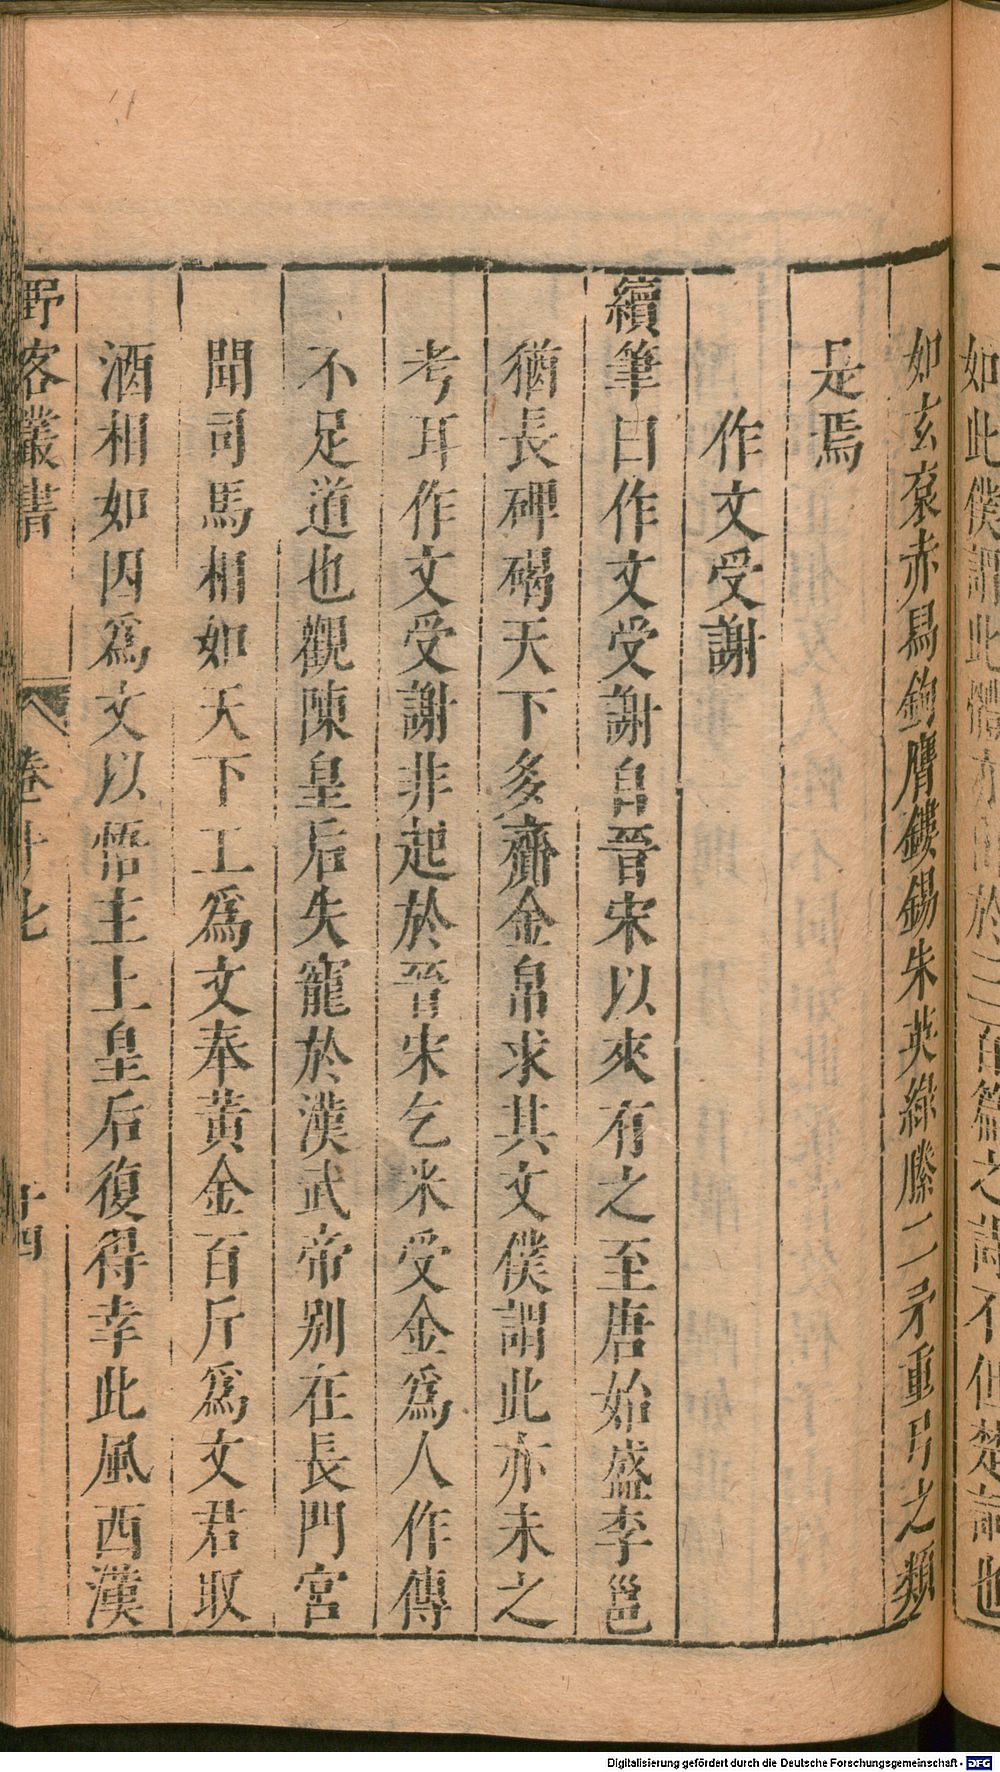 如此僕謂此體亦
於二三百篇之詩不但楚詞也
如玄袞赤舄鉤膺鏤錫朱英綠縢二矛重弓之類
是焉
作文受謝
續筆曰作文受謝自晉宋以來有之至唐始盛李邕
猶長碑碣天下多齎金帛求其文僕謂此亦未之
考耳作文受謝非起於晉宋乞米受金爲人作傳
不足道也觀陳皇后失寵於漢武帝别在長門宮
聞司馬相如天下工爲文奉黃金百斤爲文君取
酒相如因爲文以悟主上皇后復得幸此風西漢
野客叢書 卷十七 十四
Digitalisierung gefördert durch die Deutsche Forschungsgemeinschaft - DFG